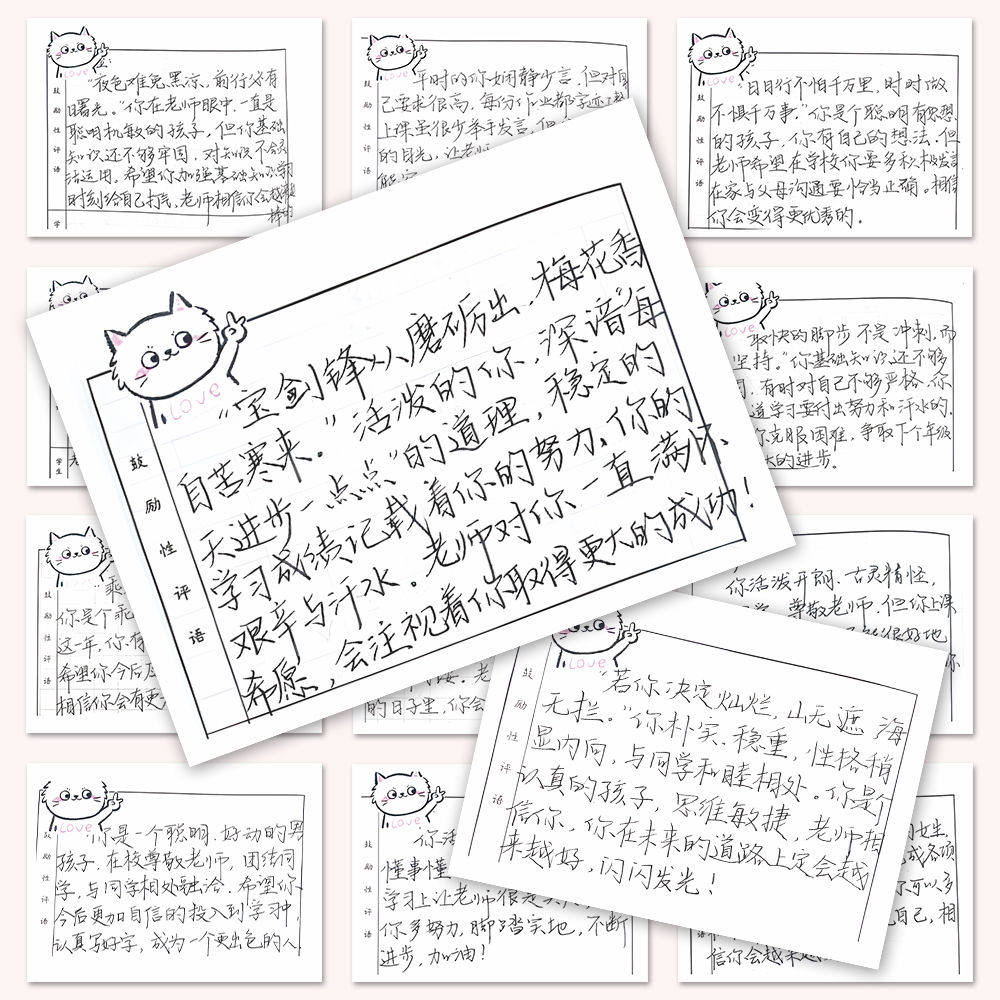 鼓励性评语
"夜色难免黑凉,前行必有
曙光。"你在老师眼中,一直是
聪明机敏的孩子,但你基础
知识还不够牢固,对知识不会灵
活运用,希望你加强基础知识学习
时刻给自己打气,老师相信你会越来越
棒的
学
鼓励性评语
平时的你娴静少言,但对自
己要求很高,每份作业都字迹
上课虽很少举手发言,但
的目光,让老师
鼓励性评语
"日日行不怕千万里,时时做
不惧千万事。"你是个聪明有思想
的孩子,你有自己的想法,但
老师希望在学校你要多积极发言
在家与父母沟通要恰当正确。相信
你会变得更优秀的。
鼓励性评语
"宝剑锋从磨砺出,梅花香
自苦寒来。"活泼的你,深谙"每
天进步一点点"的道理,稳定的
学习成绩记载着你的努力,你的
艰辛与汗水。老师对你一直满怀
希愿,会注视着你取得更大的成功!
学生
取快的脚步不是冲刺,而
坚持。"你基础知识还不够
,有时对自己不够严格,你
道学习要付出努力和汗水的,
你克服困难,争取下个年级
大的进步。
鼓励性评语
"乖
你是个乖
这一年,你有
希望你今后
相信你会有更
的日子里,你
你活泼开朗、古灵精怪,
尊敬老师,但你上课
很好地
鼓励性评语
"若你决定灿烂,山无遮,海
无拦。"你朴实、稳重,性格稍
显内向,与同学和睦相处。你是个
认真的孩子,思维敏捷,老师相
信你,你在未来的道路上定会越
来越好,闪闪发光!
鼓励性评语
你是一个聪明、好动的男
孩子,在校尊敬老师,团结同
学,与同学相处融洽。希望你
今后更加自信的投入到学习中,
认真写好字,成为一个更出色的人.
鼓励性评语
你活
懂事懂
学习上让老师很是
你多努力,脚踏实地,不断
进步,加油!
女生,
成各项
你可以多
己,相
信你会越来越